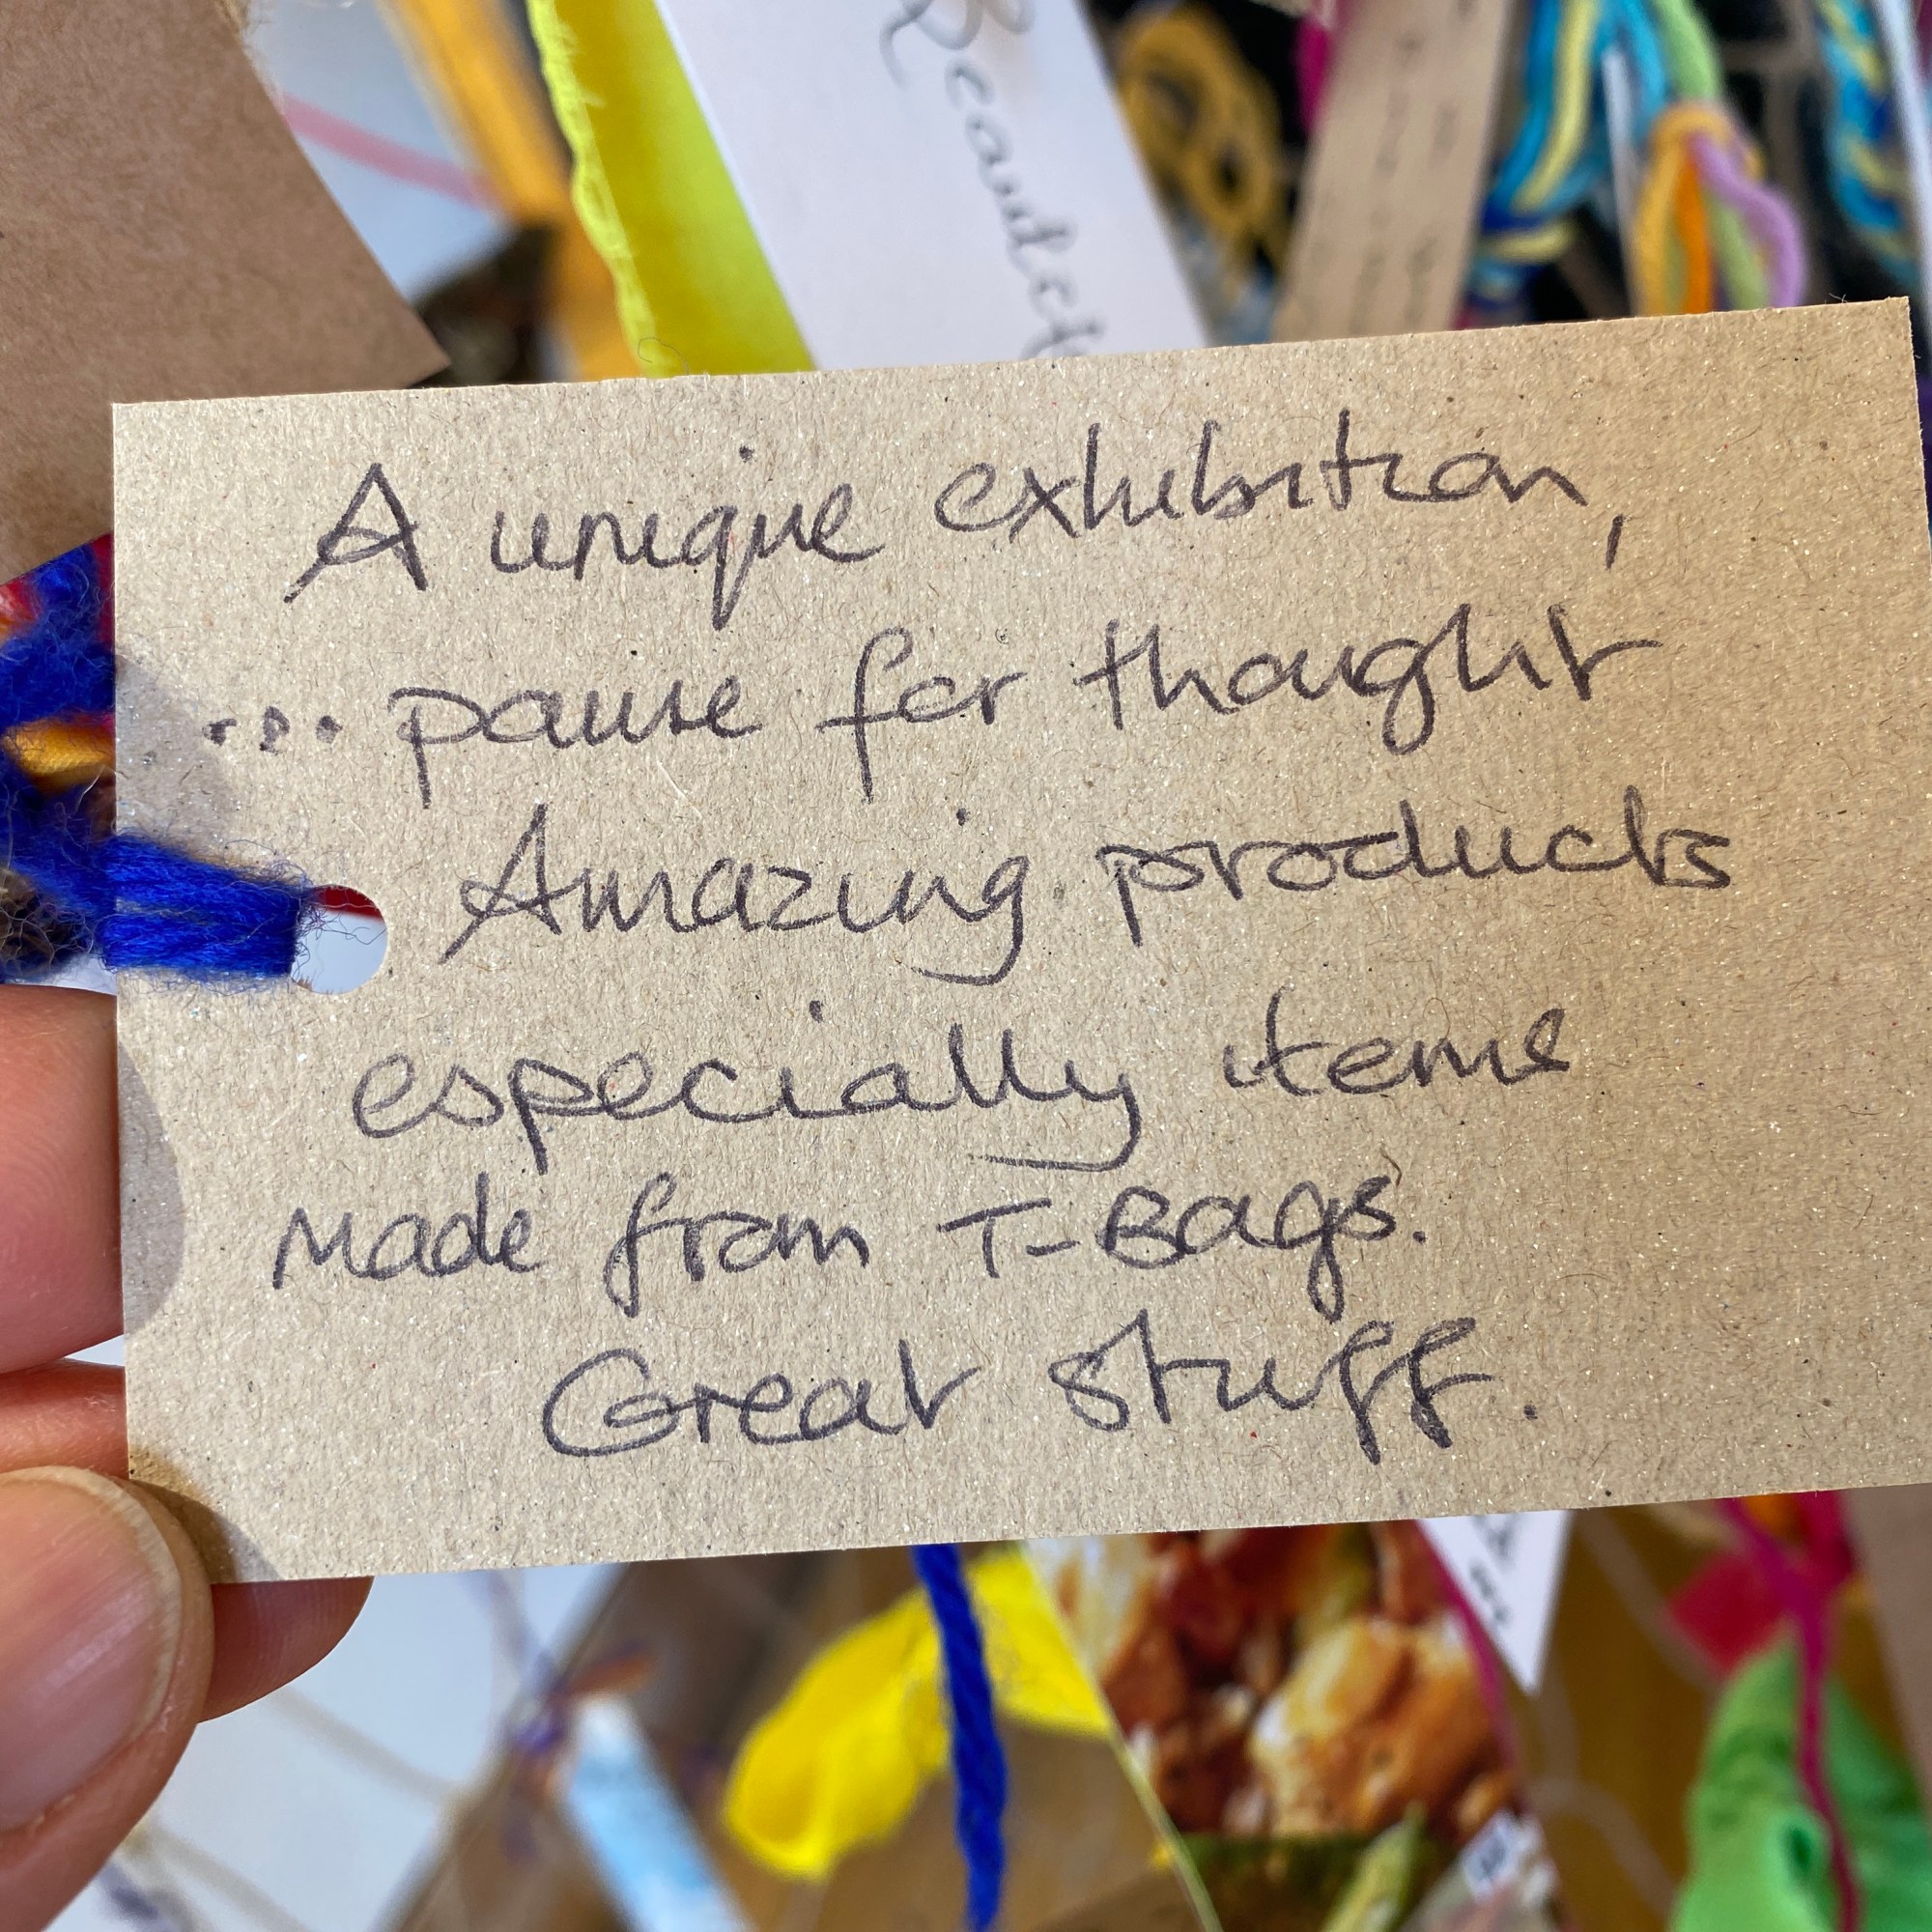 A unique exhibition,
... pause for thought
Amazing products
especially items
Made from T-Bags.
Great stuff.